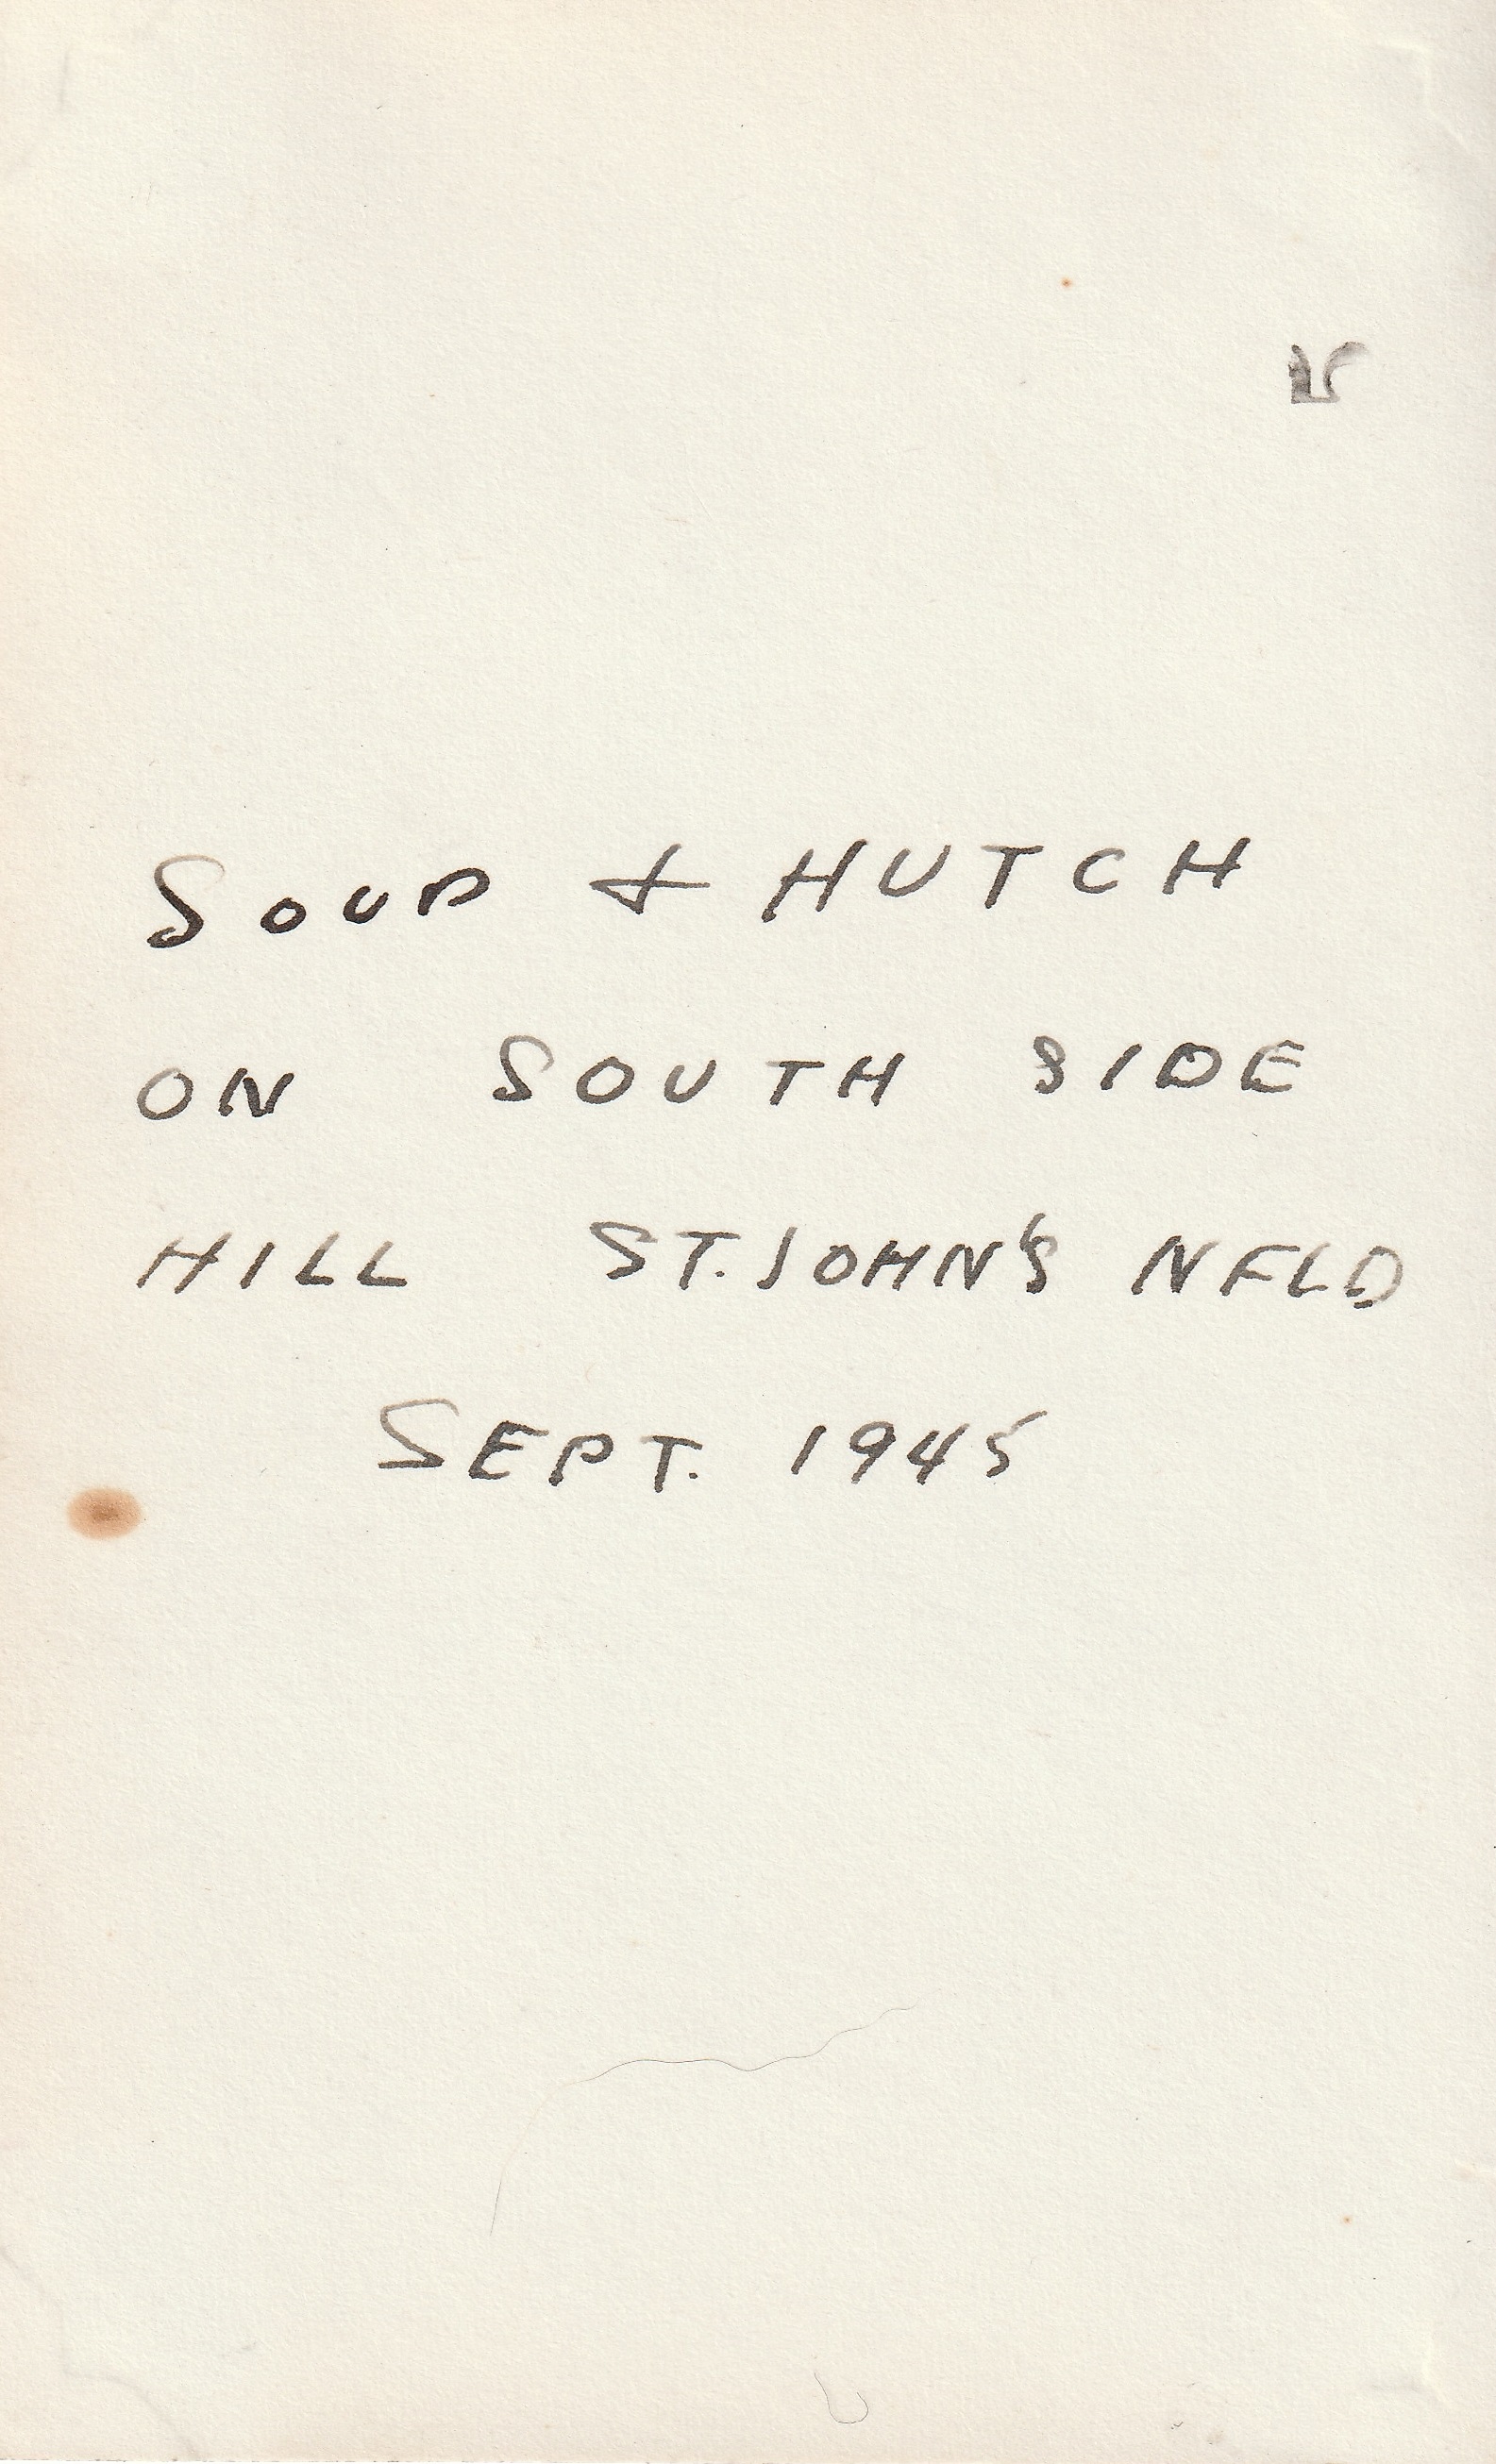 SOUP & HUTCH
ON SOUTH SIDE
HILL ST. JOHN'S NFLD
SEPT. 1945